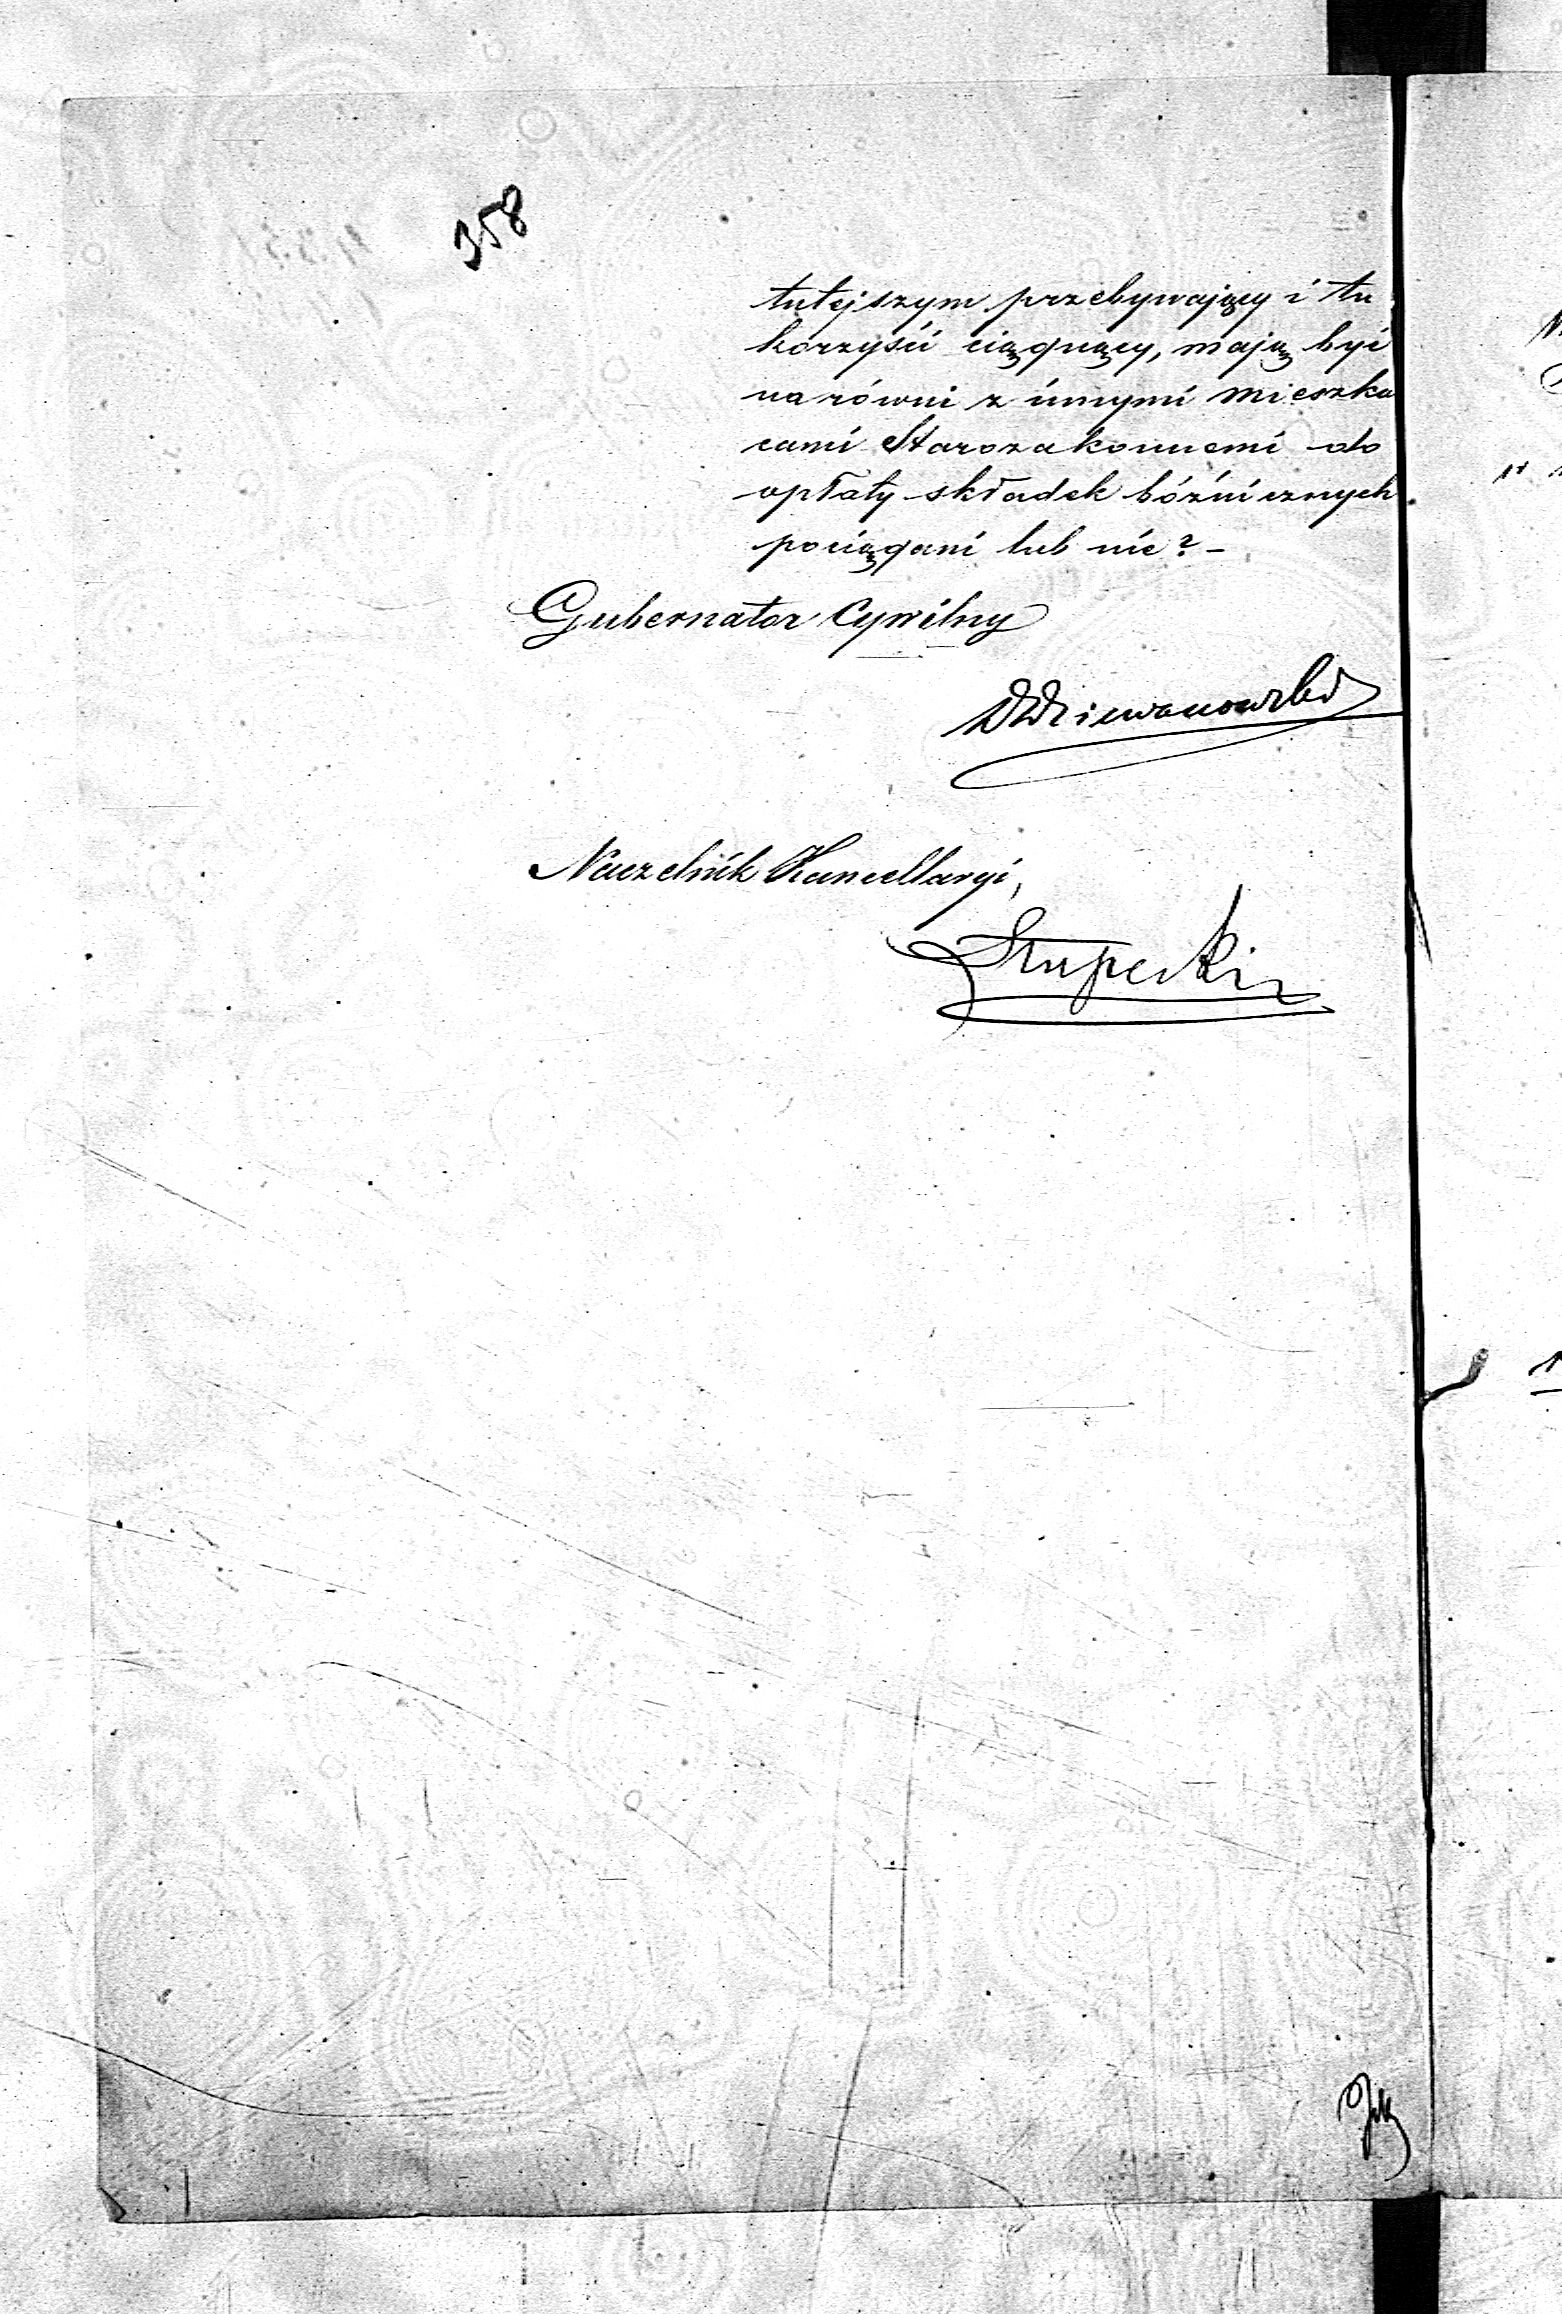 358
tutejszym przebywający i tu
korzyści ciągnący, mają być
na równi z innymi mieszka
cami Starozakonnemi do
opłaty składek bóźnicznych
pociągani lub nie? -
Gubernator Cywilny
Dziewanowski
Naczelnik Kancellaryi,
Słupecki